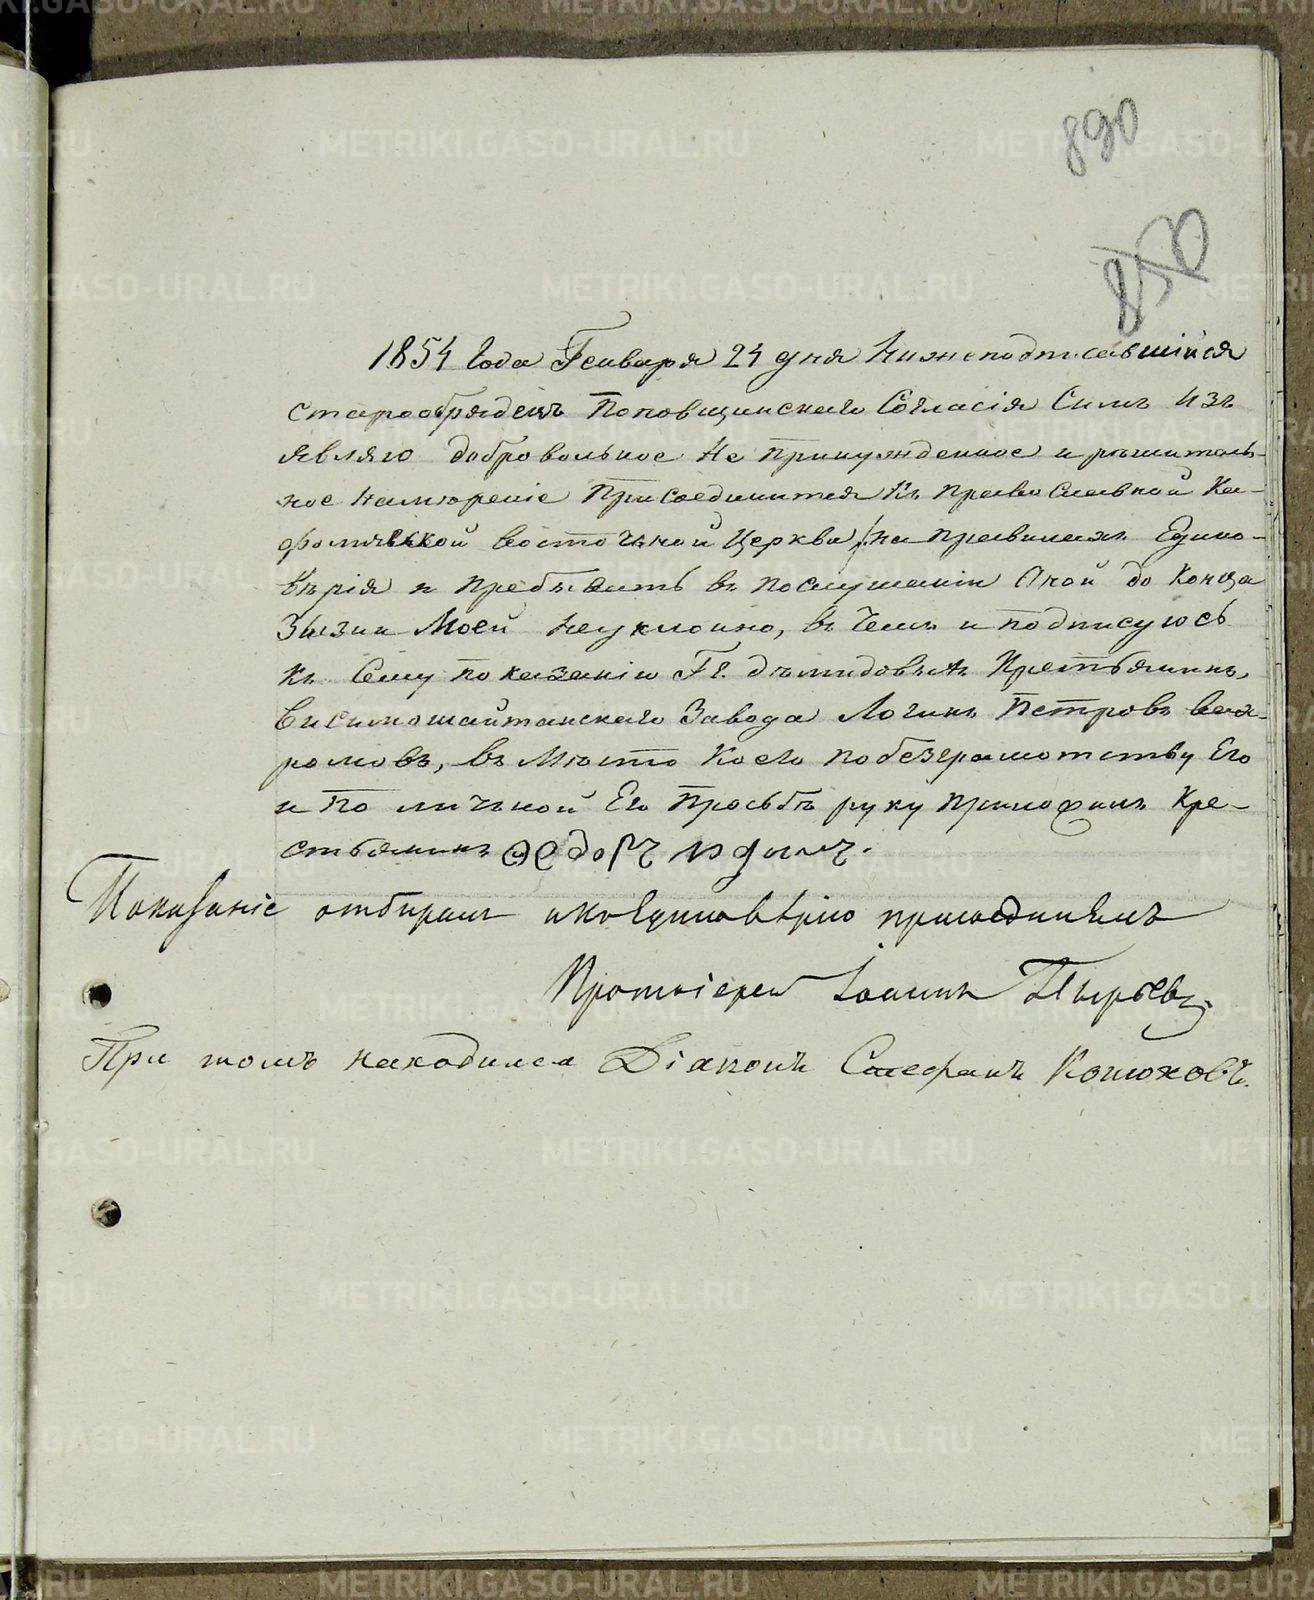 890
850
1854 Года Генваря 24 дня Нижеподписавшийся
старообрядецъ Поповщинскаго Согласія Симъ Изъ
являю добровольное Не Принужденное и рѣшитель-
ное намѣреніе Присоединится Къ Православной Ка-
фолической Восточной Церкви, на правилахъ Едино-
вѣрія и пребывать въ послушаніи Оной до Конца
Жызни Моей неуклонно, въ Чемъ и подписуюсь
къ Сему показанію Гг. дѣмидовыхъ Крестьянинъ,
Висимошайтанскаго Завода Логинъ Петровъ
въ Мѣсто Коего по безграмотству Его
и По личной Его Прозьбѣ руку приложилъ Кре-
стьянинъ Ѳедоръ
Показаніе отбиралъ и ко Единовѣрію присоединилъ
Протоіерей Іоаннъ Пырьевъ
При томъ находился Діаконъ Стефанъ Конюховъ.